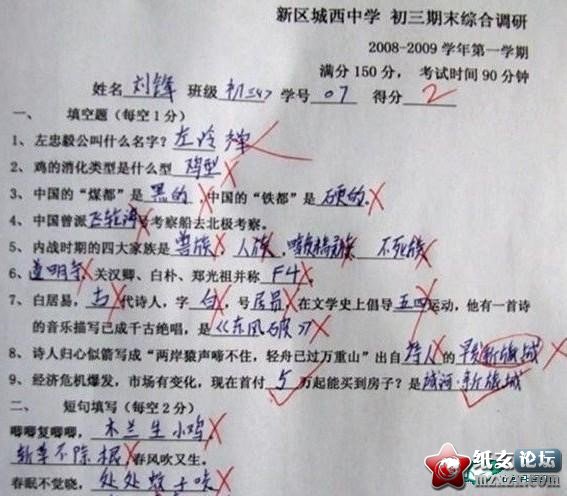 新区城西中学 初三期末综合调研
2008-2009学年第一学期
满分 150 分, 考试时间 90 分钟
姓名 刘锋 班级 初三 学号 07 得分 2
一、 填空题(每空1分)
1、左忠毅公叫什么名字?左冷禅
2、鸡的消化类型是什么型 鸡型
3、中国的“煤都”是 黑的 ,中国的“铁都”是 硬的.
4、中国曾派 飞轮海 号考察船去北极考察。
5、内战时期的四大家族是 兽族, 人族, 暗夜精灵族 不死族
6、道明寺 关汉卿、白朴、郑光祖并称 F4
7、白居易, 古 代诗人,字 白 ,号 居易 在文学史上倡导 五四 运动,他有一首诗
的音乐描写已成千古绝唱,是 《东风破》
8、诗人归心似箭写成“两岸猿声啼不住,轻舟已过万重山”出自 诗人 的 新旗城
9、经济危机爆发,市场有变化,现在首付 5 万起能买到房子?是 城河·新旗城
二、 短句填写(每空2分)
唧唧复唧唧, 木兰生小鸡
斩草不除根 春风吹又生.
春眠不觉晓, 处处蚊子咬
纸友论坛